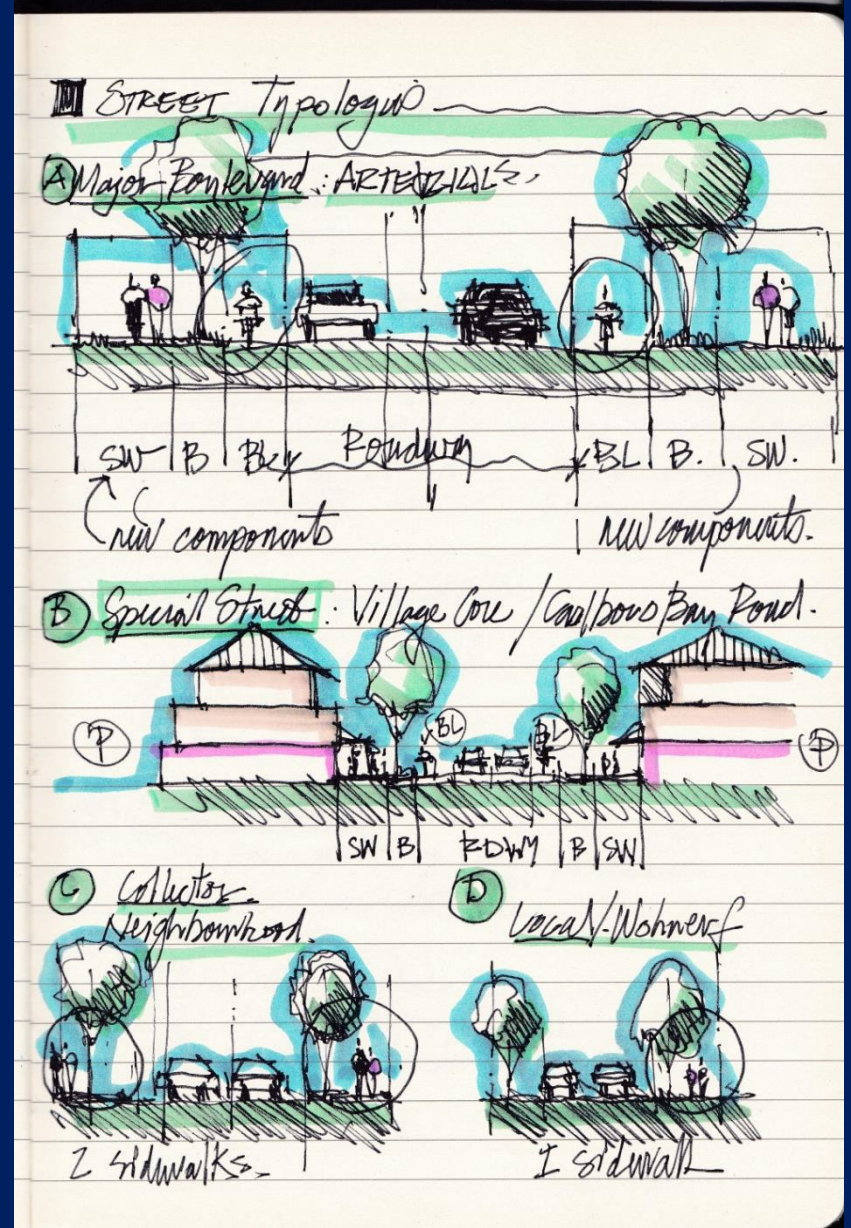 III STREET Typologies
A Major Boulevard : ARTERIALS.
SW B BL Roadway BL B. SW.
new components new components.
B Special Street : Village Core / Cadboro Bay Road.
BL BL
P P
SW B RDWY B SW
C Collector- D
Neighbourhood. Local/-Wohnerf
2 sidewalks. 1 sidewalk